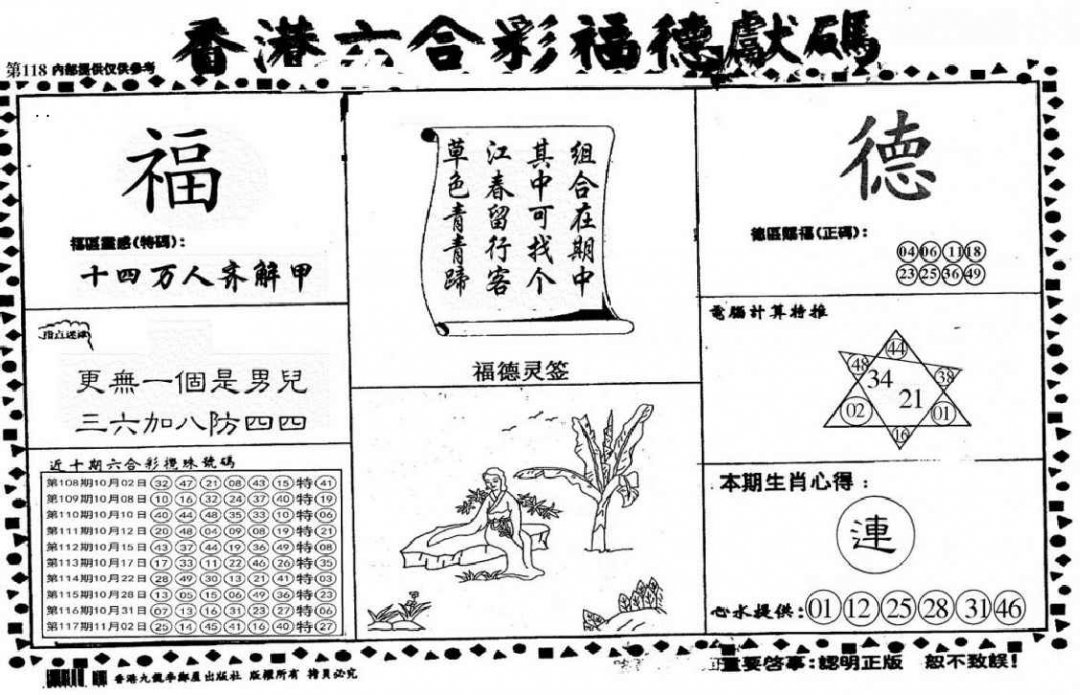 香港六合彩福德獻碼
第118 內部提供仅供参考
福
福區靈感(特碼):
十四万人齐解甲
指点迷津
更無一個是男兒
三六加八防四四
近十期六合彩攪珠號碼
第108期10月02日 32 47 21 08 43 15 特 41
第109期10月08日 10 16 32 24 37 40 特 19
第110期10月10日 40 44 48 35 33 10 特 06
第111期10月12日 20 48 04 09 08 19 特 21
第112期10月15日 43 37 44 19 36 49 特 08
第113期10月17日 17 33 11 22 46 26 特 35
第114期10月22日 28 49 30 13 21 41 特 03
第115期10月28日 13 05 15 06 49 36 特 23
第116期10月31日 07 13 16 31 23 27 特 06
第117期11月02日 25 14 45 41 16 40 特 27
组合在期中
其中可找个
江春留行客
草色青青蹄
福德灵签
德
德區賜福(正碼):
04 06 11 18
23 25 36 49
電腦計算特推
44
48 34 38
02 21 01
16
本期生肖心得:
連
心水提供: 01 12 25 28 31 46
香港九龍李鄭屋出版社 版權所有 拷貝必究
重要啓事:認明正版 恕不致誤!